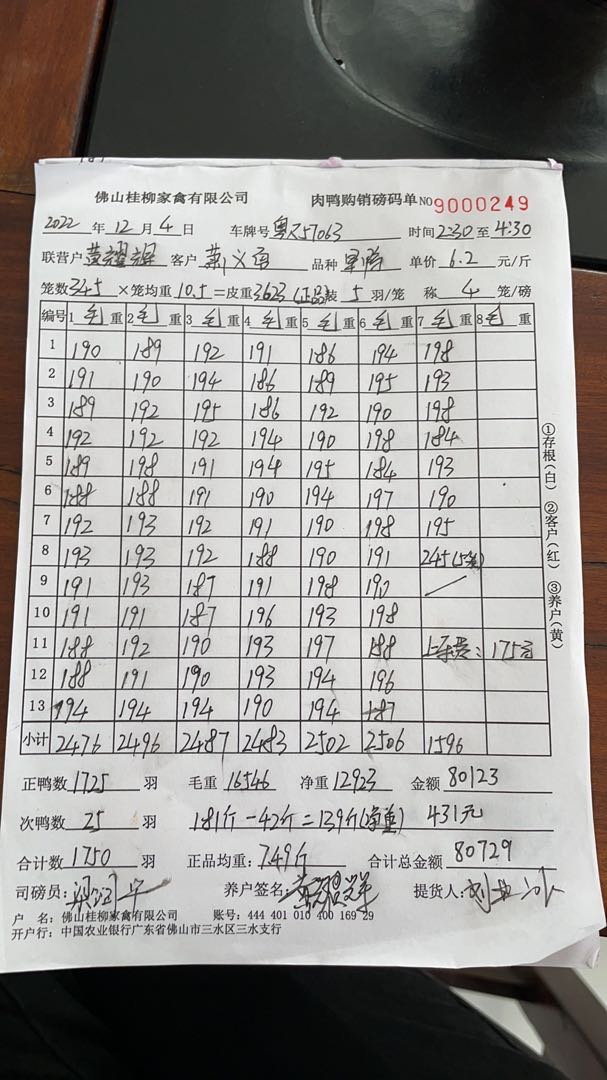 佛山桂柳家禽有限公司 肉鸭购销磅码单 NO 9000249
2022 年 12 月 4 日 车牌号 粤 57063 时间 2:30 至 4:30
联营户 黄耀辉 客户 萧 品种 单价 6.2 元/斤
笼数 345 ×笼均重 10.5 =皮重 3623 (正品)装 5 羽/笼 称 4 笼/磅
编号 1 毛 重 2 毛 重 3 毛 重 4 毛 重 5 毛 重 6 毛 重 7 毛 重 8 毛 重
1 190 189 192 191 186 194 198
2 191 190 194 186 189 195 193
3 189 192 195 186 192 190 198
4 192 192 192 194 190 198 184
5 189 198 191 194 195 184 193
6 188 188 191 190 194 197 190
7 192 193 192 191 190 198 195
8 193 193 192 188 190 191 245(5笼)
9 191 193 187 191 198 190
10 191 191 187 196 193 198
11 188 192 190 193 197 188 上车费:175元
12 188 191 190 193 194 196
13 194 194 194 190 194 187
小计 2476 2496 2487 2483 2502 2506 1596
①存根(白) ②客户(红) ③养户(黄)
正鸭数 1725 羽 毛重 16546 净重 12923 金额 80123
次鸭数 25 羽 181斤-42斤=139斤(净重) 431元
合计数 1750 羽 正品均重: 7.49斤 合计总金额 80729
司磅员: 养户签名: 提货人:
户 名: 佛山桂柳家禽有限公司 账号: 444 401 010 400 169 29
开户行: 中国农业银行广东省佛山市三水区三水支行